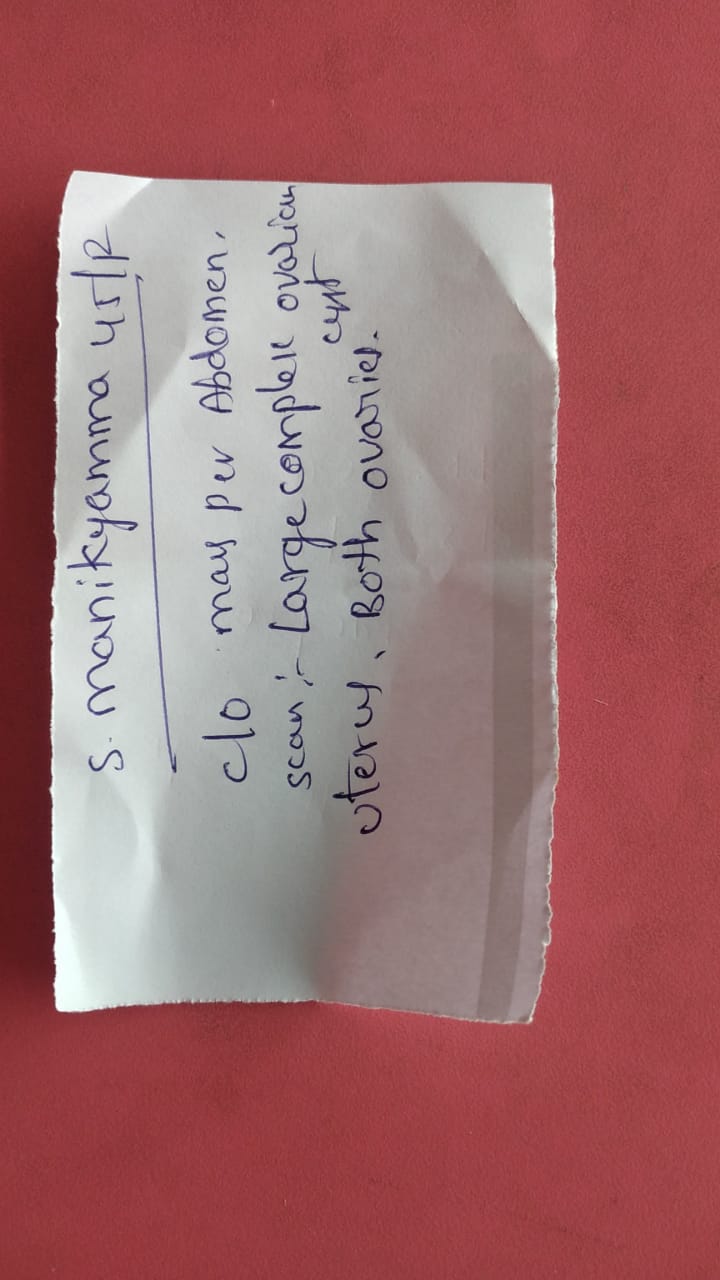 S. Manikyamma 45/F
c/o mass per Abdomen.
scan :- Large complex ovarian cyst
uterus, Both ovaries.